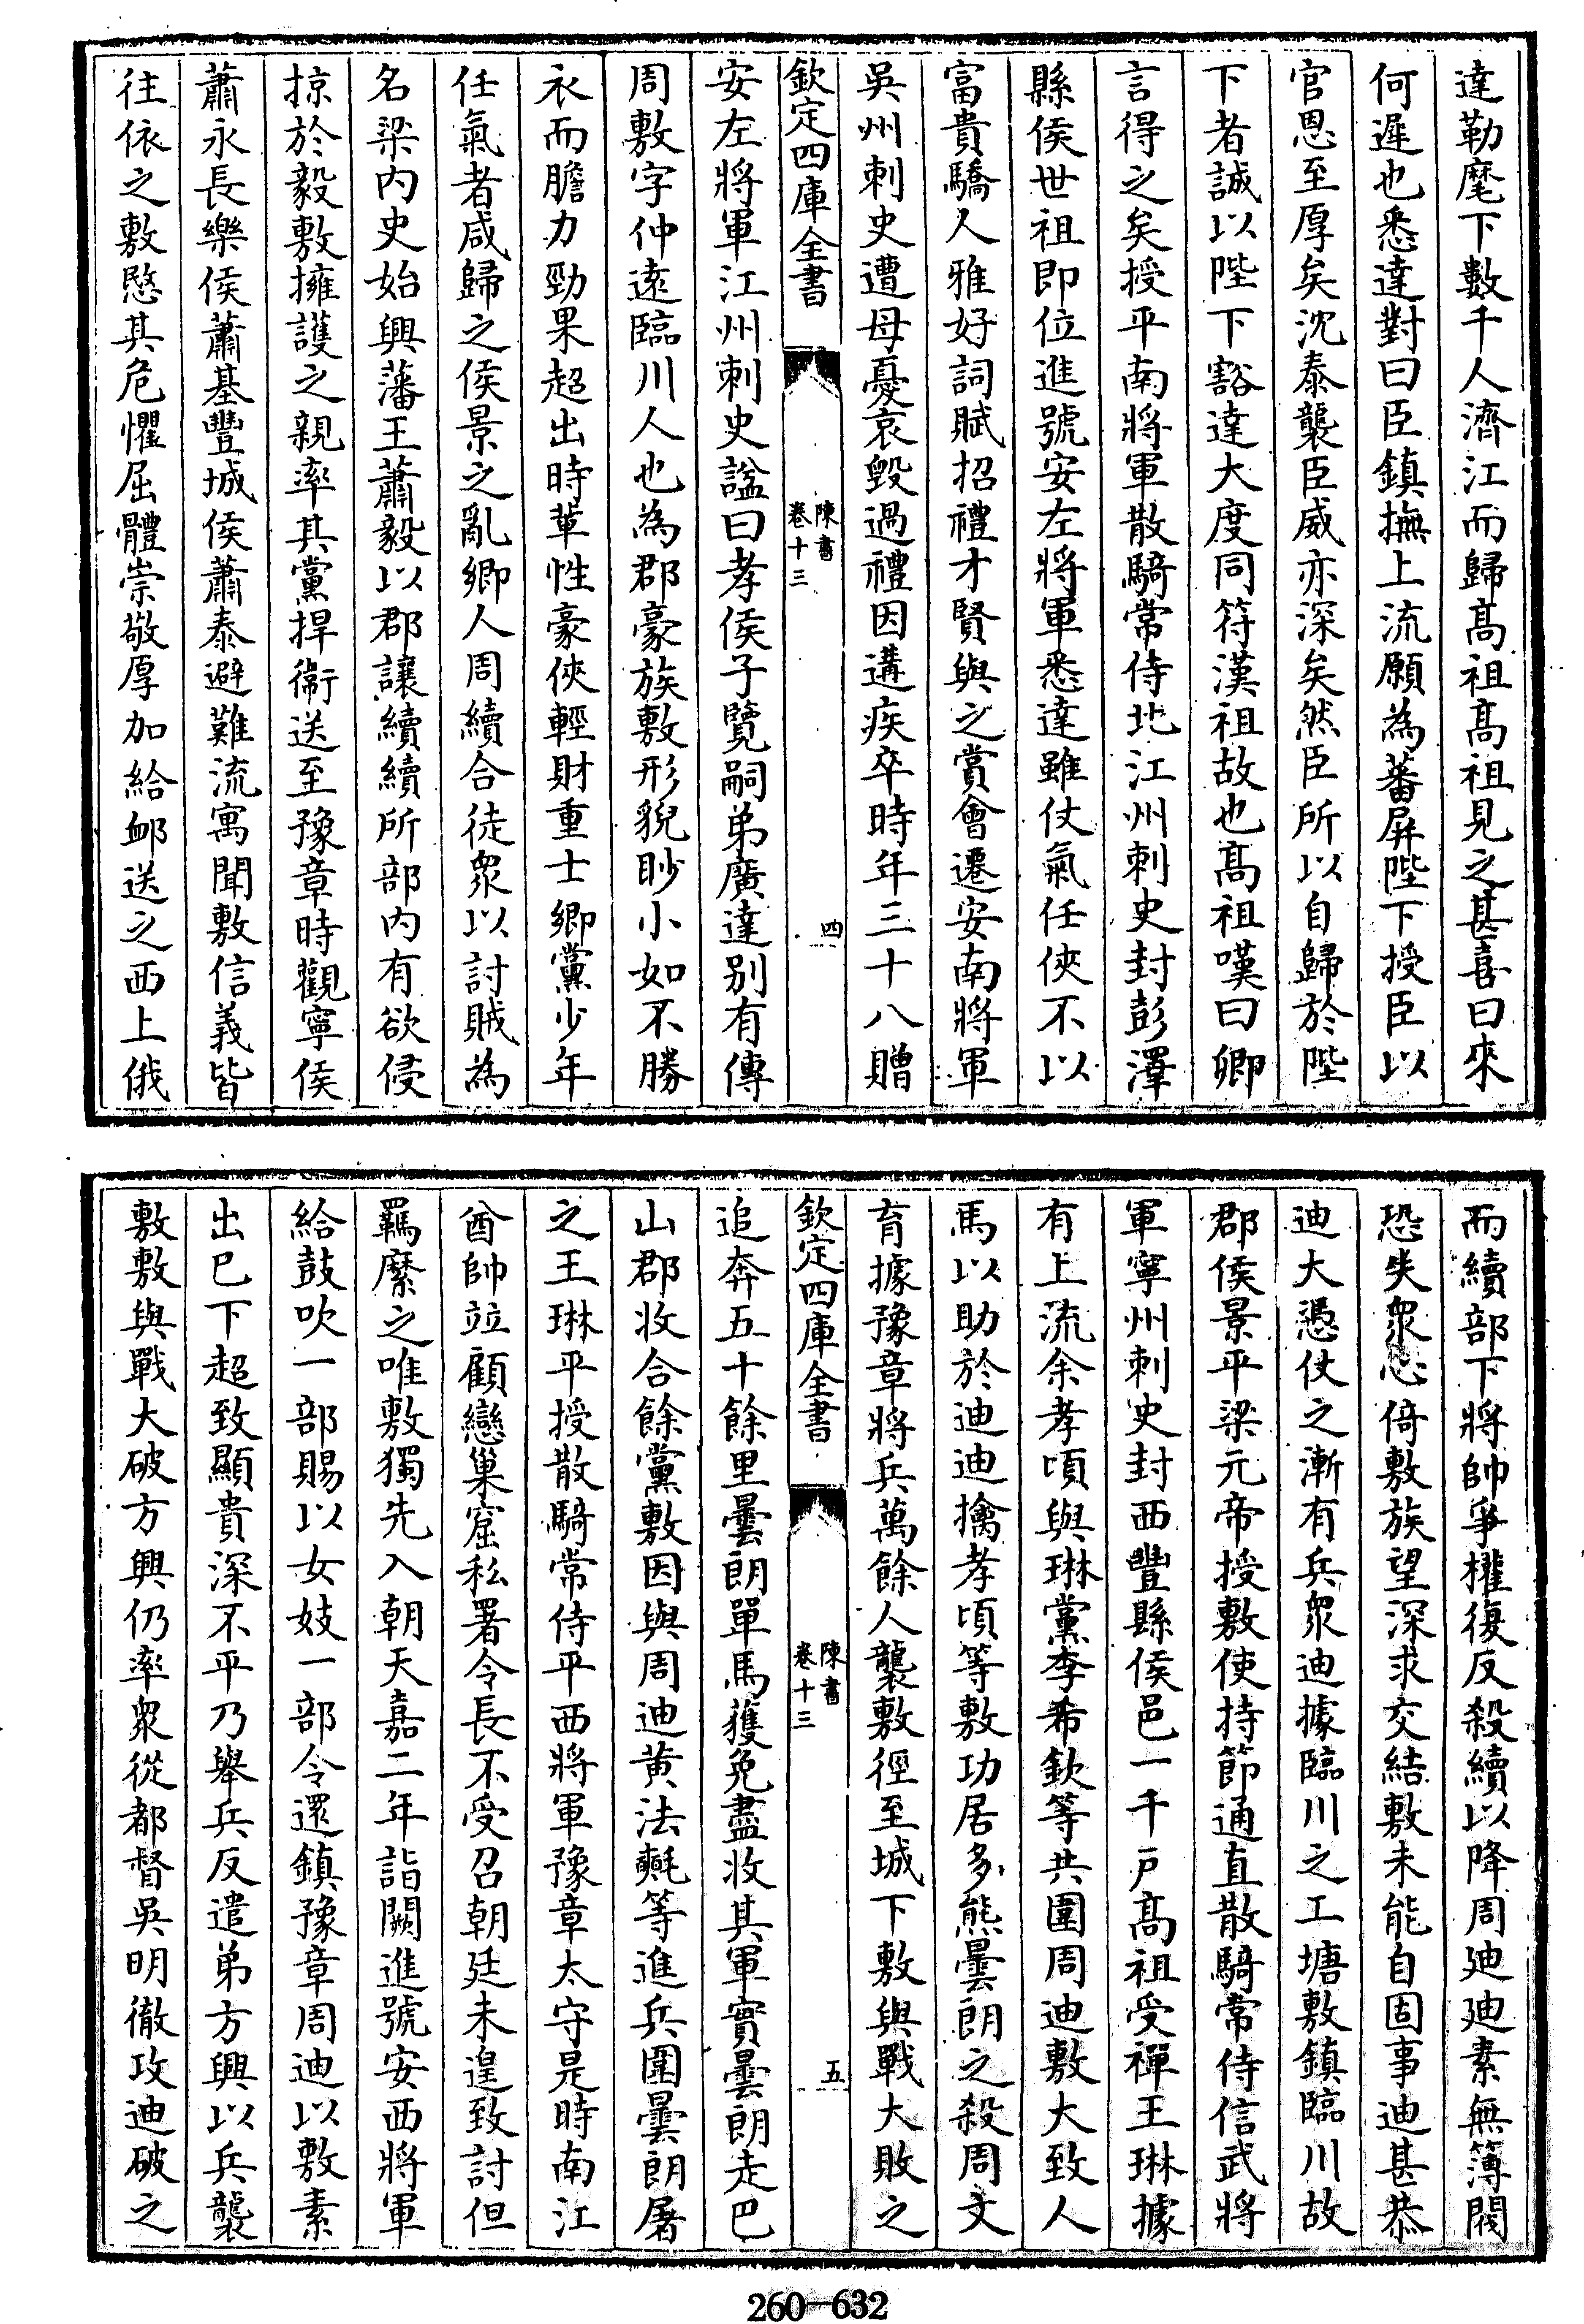 達勒麾下數千人濟江而歸髙祖髙祖見之甚喜曰來
何遲也悉達對曰臣鎮撫上流願為蕃屏陛下授臣以
官恩至厚矣沈泰襲臣威亦深矣然臣所以自歸於陛
下者誠以陛下豁達大度同符漢祖故也髙祖嘆曰卿
言得之矣授平南將軍散騎常侍北江州刺史封彭澤
縣侯世祖即位進號安左將軍悉達雖仗氣任俠不以
富貴驕人雅好詞賦招禮才賢與之賞會遷安南將軍
吳州刺史遭母憂哀毀過禮因遘疾卒時年三十八贈
欽定四庫全書
陳書
卷十三
四
安左將軍江州刺史諡曰孝侯子覽嗣弟廣達别有傳
周敷字仲遠臨川人也為郡豪族敷形貎眇小如不勝
衣而膽力勁果超出時輩性豪俠輕財重士鄉黨少年
任氣者咸歸之侯景之亂鄉人周續合徒衆以討賊為
名梁内史始興藩王蕭毅以郡讓續續所部内有欲侵
掠於毅敷擁護之親率其黨捍衞送至豫章時觀寧侯
蕭永長樂侯蕭基豐城侯蕭泰避難流寓聞敷信義皆
往依之敷愍其危懼屈體崇敬厚加給䘏送之西上俄
而續部下將帥爭權復反殺續以降周廸廸素無簿閥
恐失衆心倚敷族望深求交結敷未能自固事迪甚恭
迪大慿仗之漸有兵衆迪據臨川之工塘敷鎮臨川故
郡侯景平梁元帝授敷使持節通直散騎常侍信武將
軍寧州刺史封西豐縣侯邑一千戸髙祖受禪王琳據
有上流余孝頃與琳黨李希欽等共圍周迪敷大致人
馬以助於迪迪擒孝頃等敷功居多熊曇朗之殺周文
育據豫章將兵萬餘人襲敷徑至城下敷與戰大敗之
欽定四庫全書
陳書
卷十三
五
追奔五十餘里曇朗單馬獲免盡收其軍實曇朗走巴
山郡收合餘黨敷因與周迪黄法𣰰等進兵圍曇朗屠
之王琳平授散騎常侍平西將軍豫章太守是時南江
酋帥竝顧戀巢窟私署令長不受召朝廷未遑致討但
羈縻之唯敷獨先入朝天嘉二年詣闕進號安西將軍
給鼓吹一部賜以女妓一部令還鎮豫章周迪以敷素
出已下超致顯貴深不平乃舉兵反遣弟方興以兵襲
敷敷與戰大破方興仍率衆從都督吳明徹攻迪破之
260-632